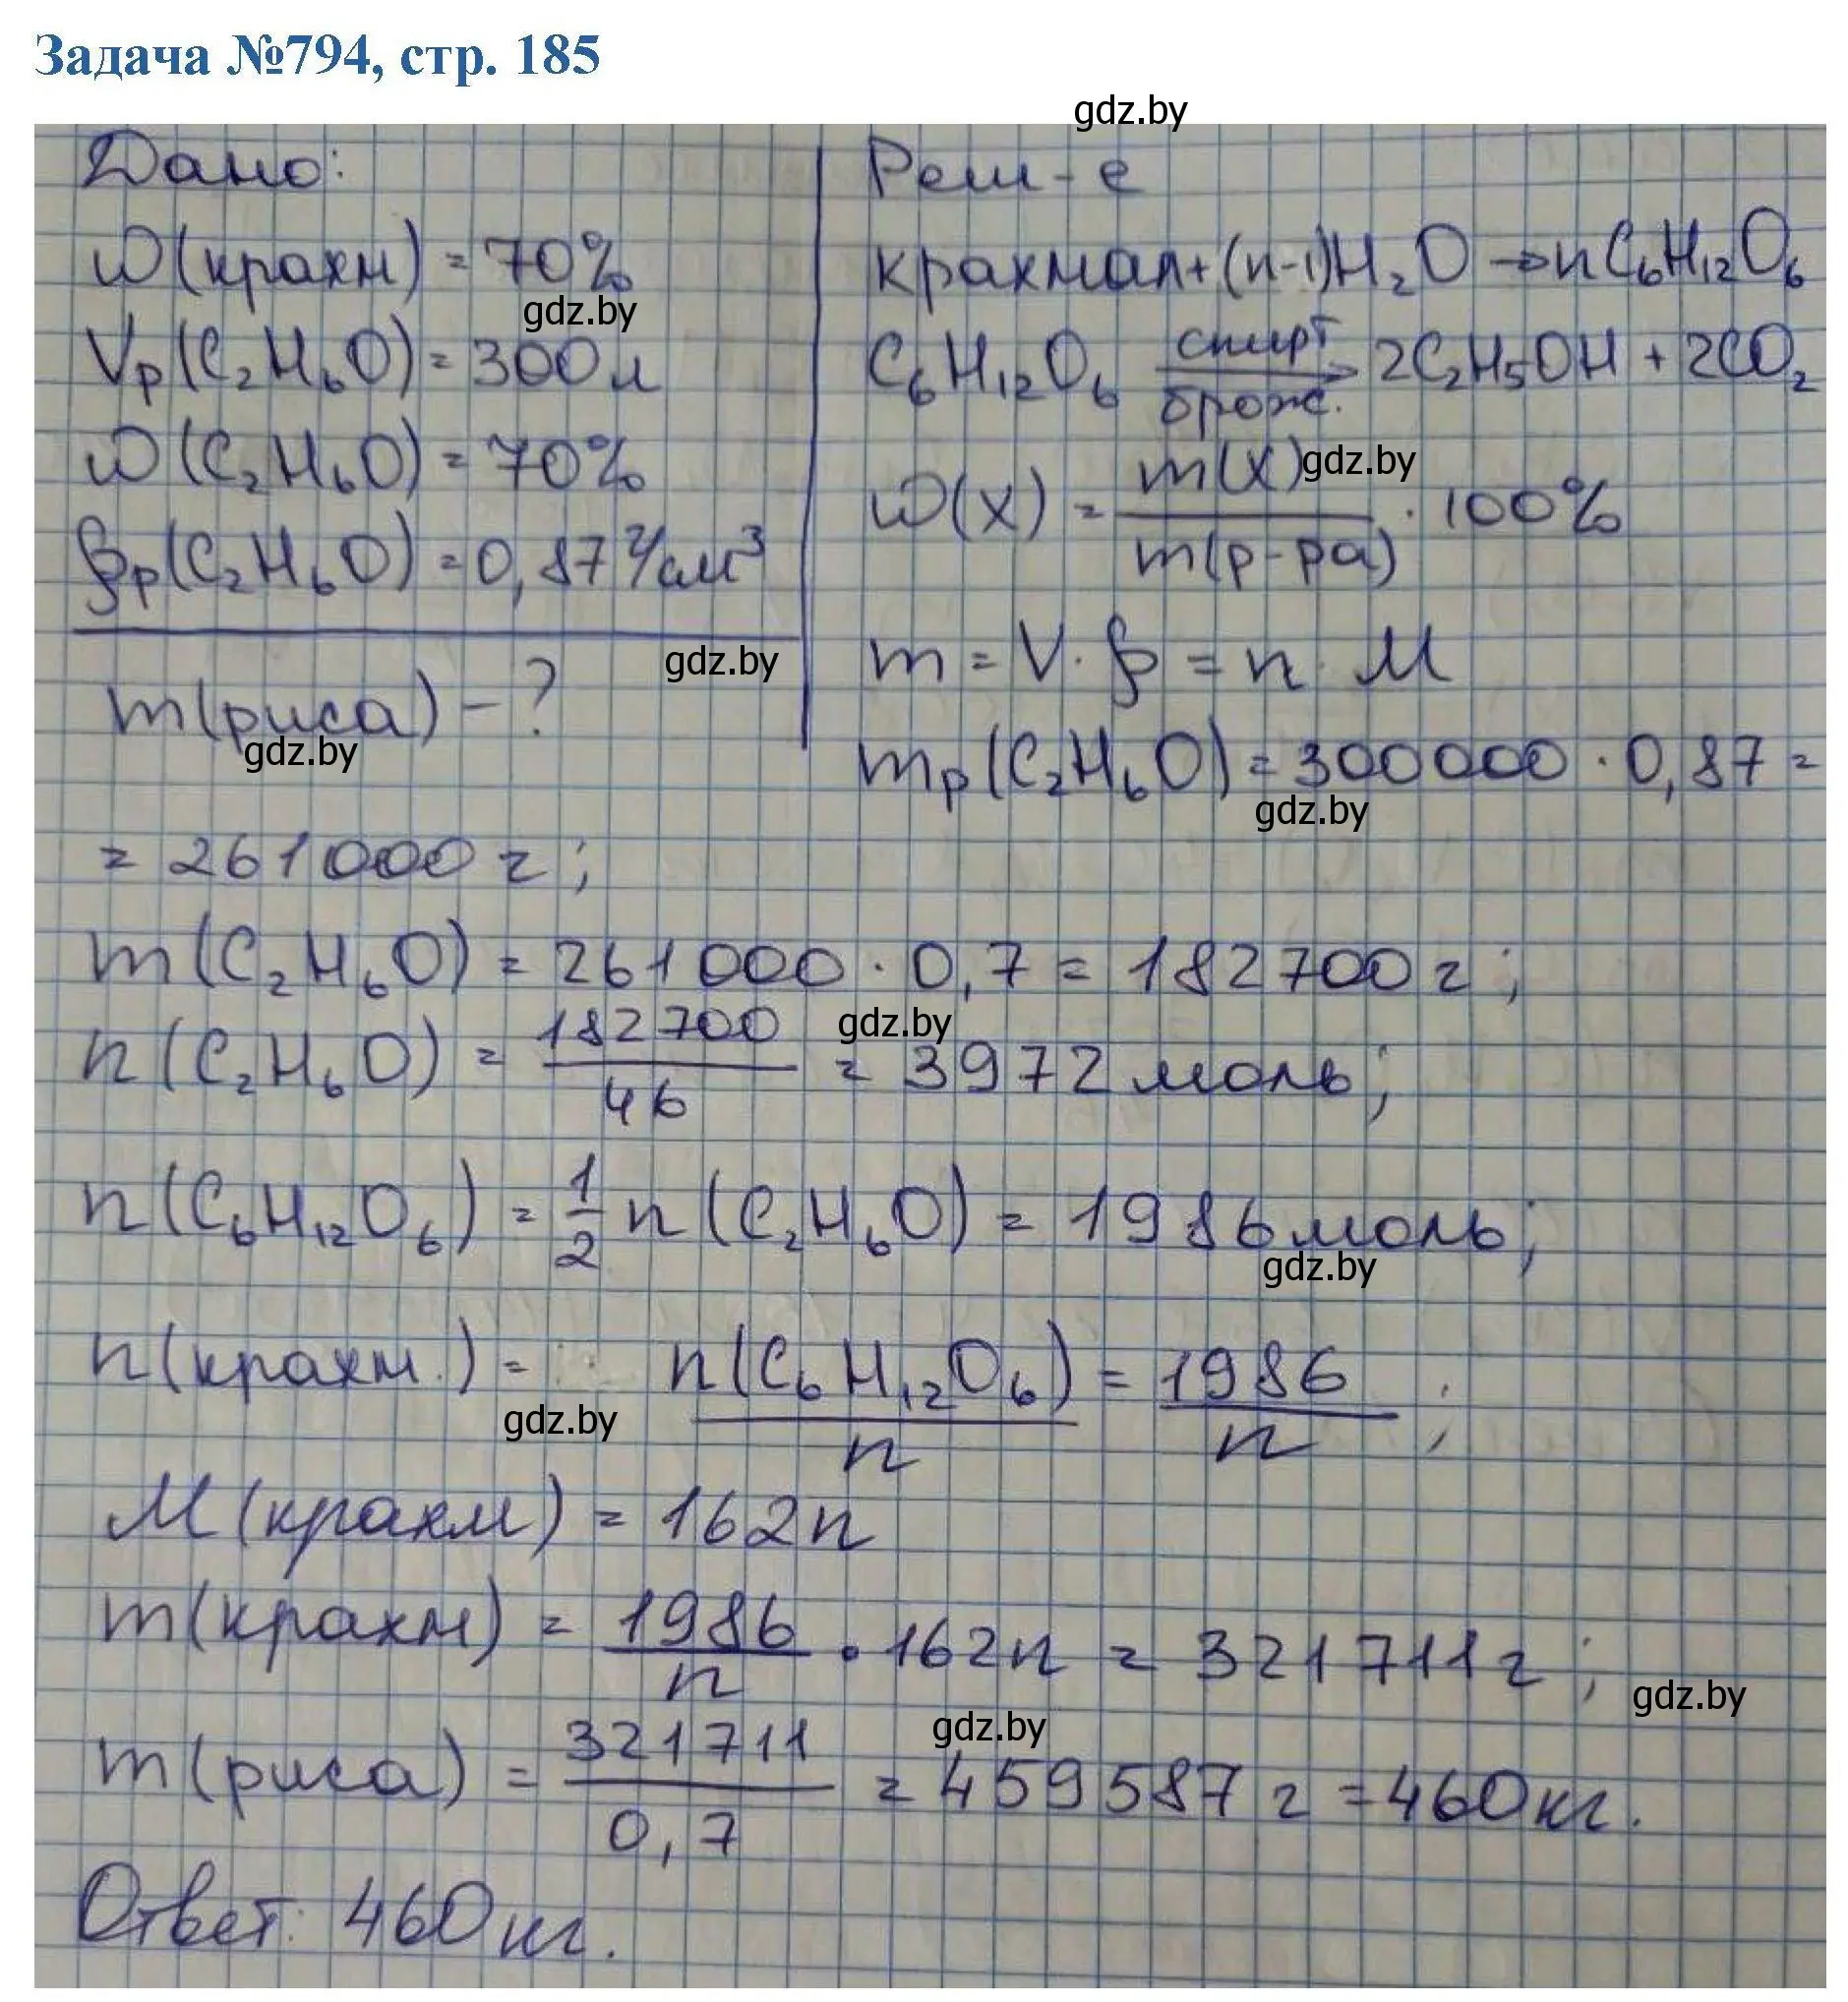 Задача №794, стр. 185
gdz.by
Дано:
Реш-е
ω(крахм) = 70%
gdz.by
Vр(C₂H₆O) = 300л
ω(C₂H₆O) = 70%
ρр(C₂H₆O) = 0,87 г/см³
gdz.by
m(риса) - ?
gdz.by
крахмал + (n-1)H₂O → nC₆H₁₂O₆
C₆H₁₂O₆ спирт брож. → 2C₂H₅OH + 2CO₂
ω(X) = m(X) / m(р-ра) · 100%
gdz.by
m = V · ρ = n · M
mр(C₂H₆O) = 300000 · 0,87 =
gdz.by
= 261000 г;
m(C₂H₆O) = 261000 · 0,7 = 182700 г;
n(C₂H₆O) = 182700 / 46 = 3972 моль;
gdz.by
n(C₆H₁₂O₆) = 1/2 n(C₂H₆O) = 1986 моль;
gdz.by
n(крахм.) = n(C₆H₁₂O₆) / n = 1986 / n ;
gdz.by
M(крахм) = 162n
m(крахм) = 1986 / n · 162n = 321711 г;
gdz.by
m(риса) = 321711 / 0,7 = 459587 г = 460 кг.
gdz.by
Ответ: 460 кг.